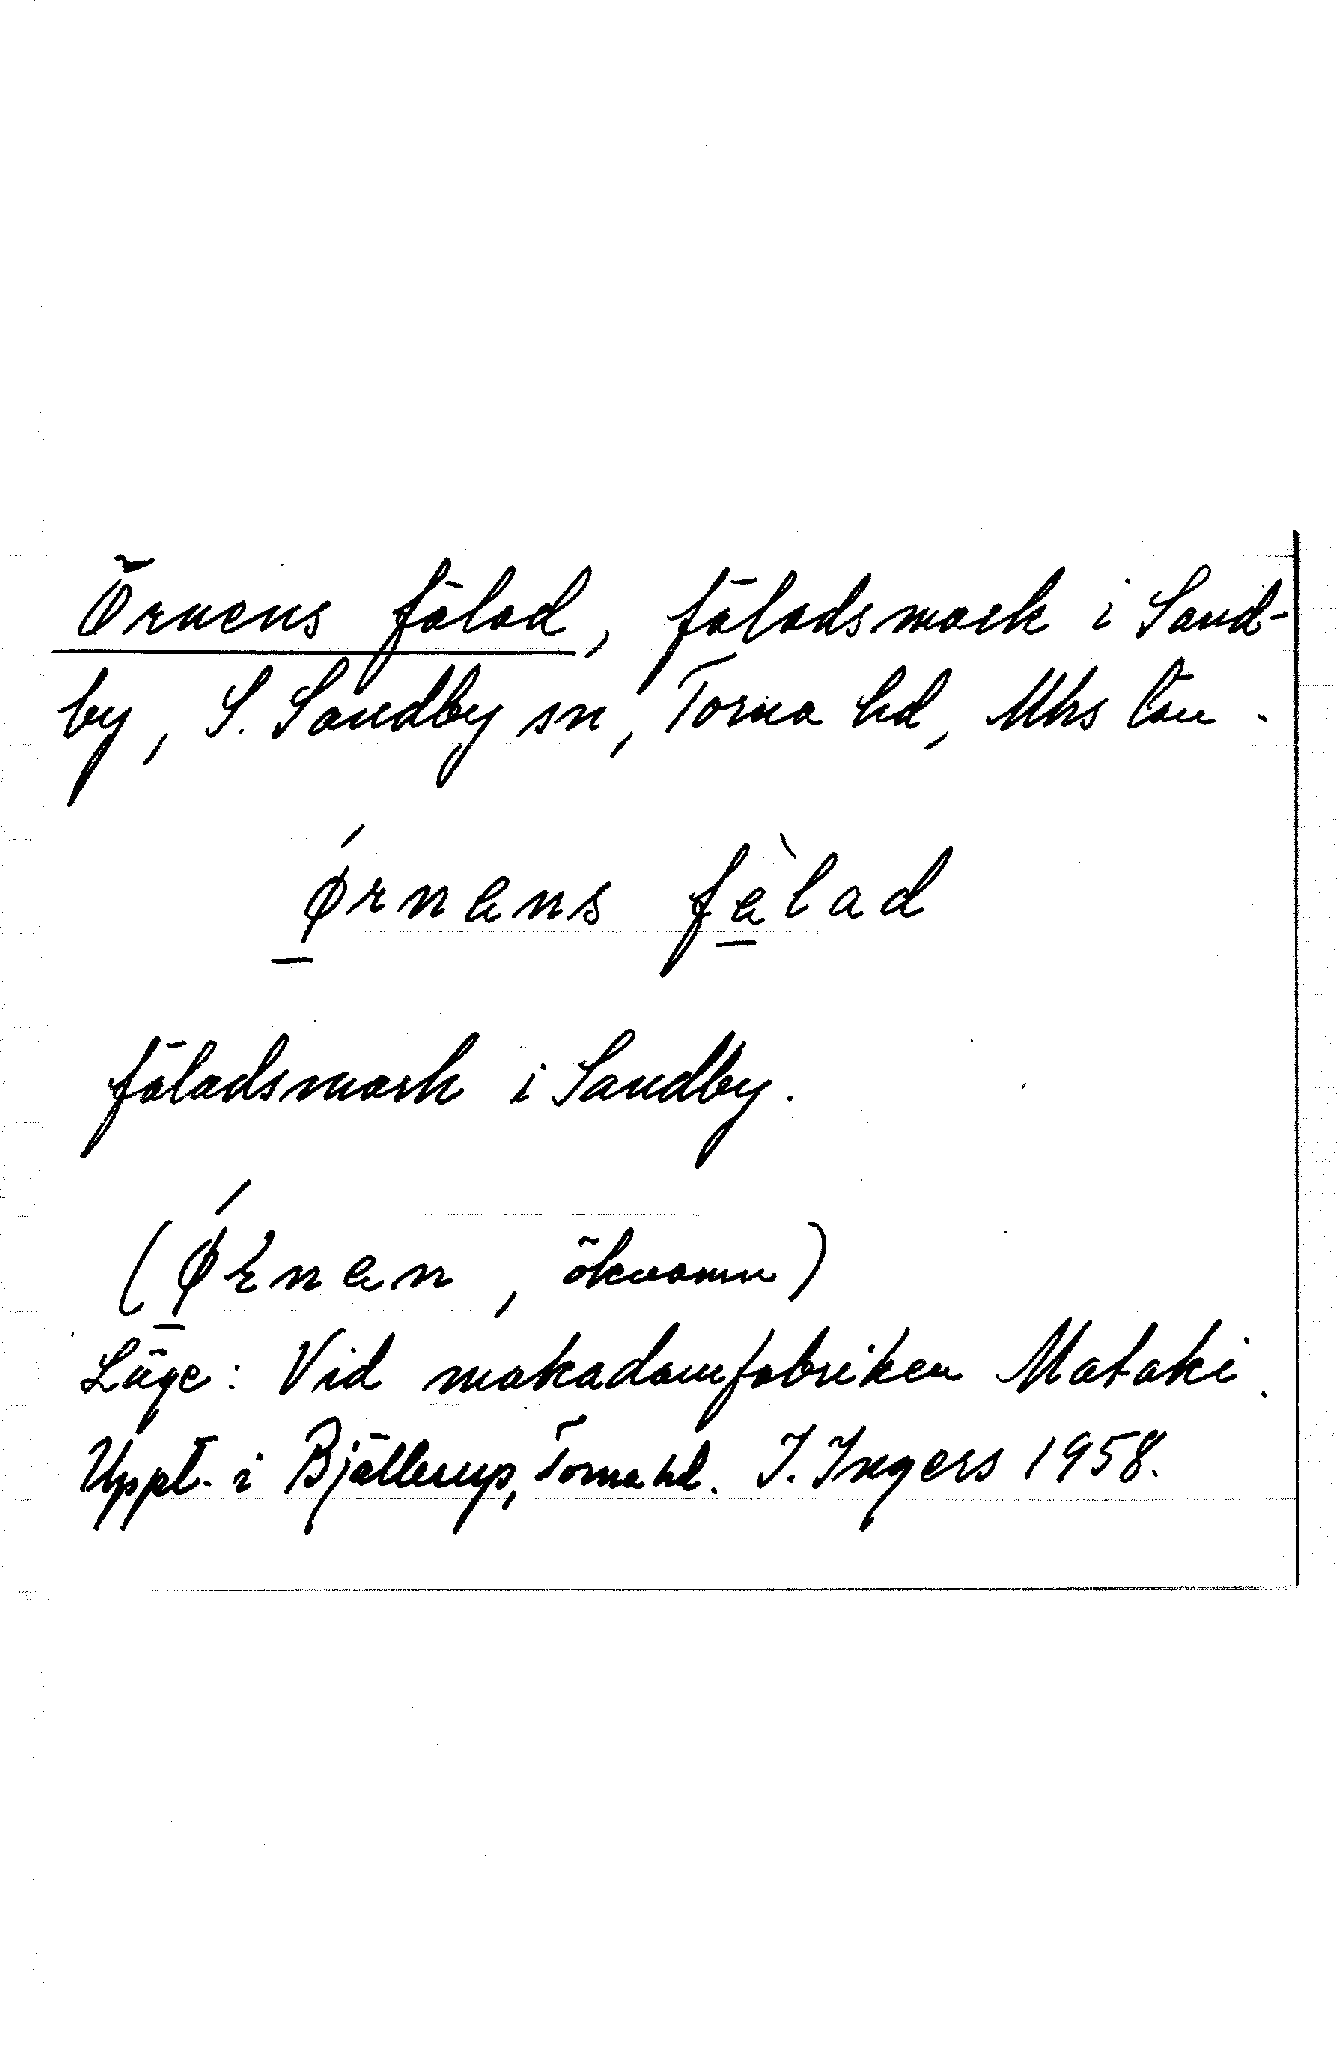 Örnens fälad, fäladsmark i Sand-
by, S. Sandby sn, Torna hd, Mhs län.
Ǿrnens fèlad
fäladsmark i Sandby.
(Ǿrnen, öknamn)
Läge: Vid makadamfabriken Mataki.
Uppt. i Bjällerup, Torna hd. I. Ingers 1958.